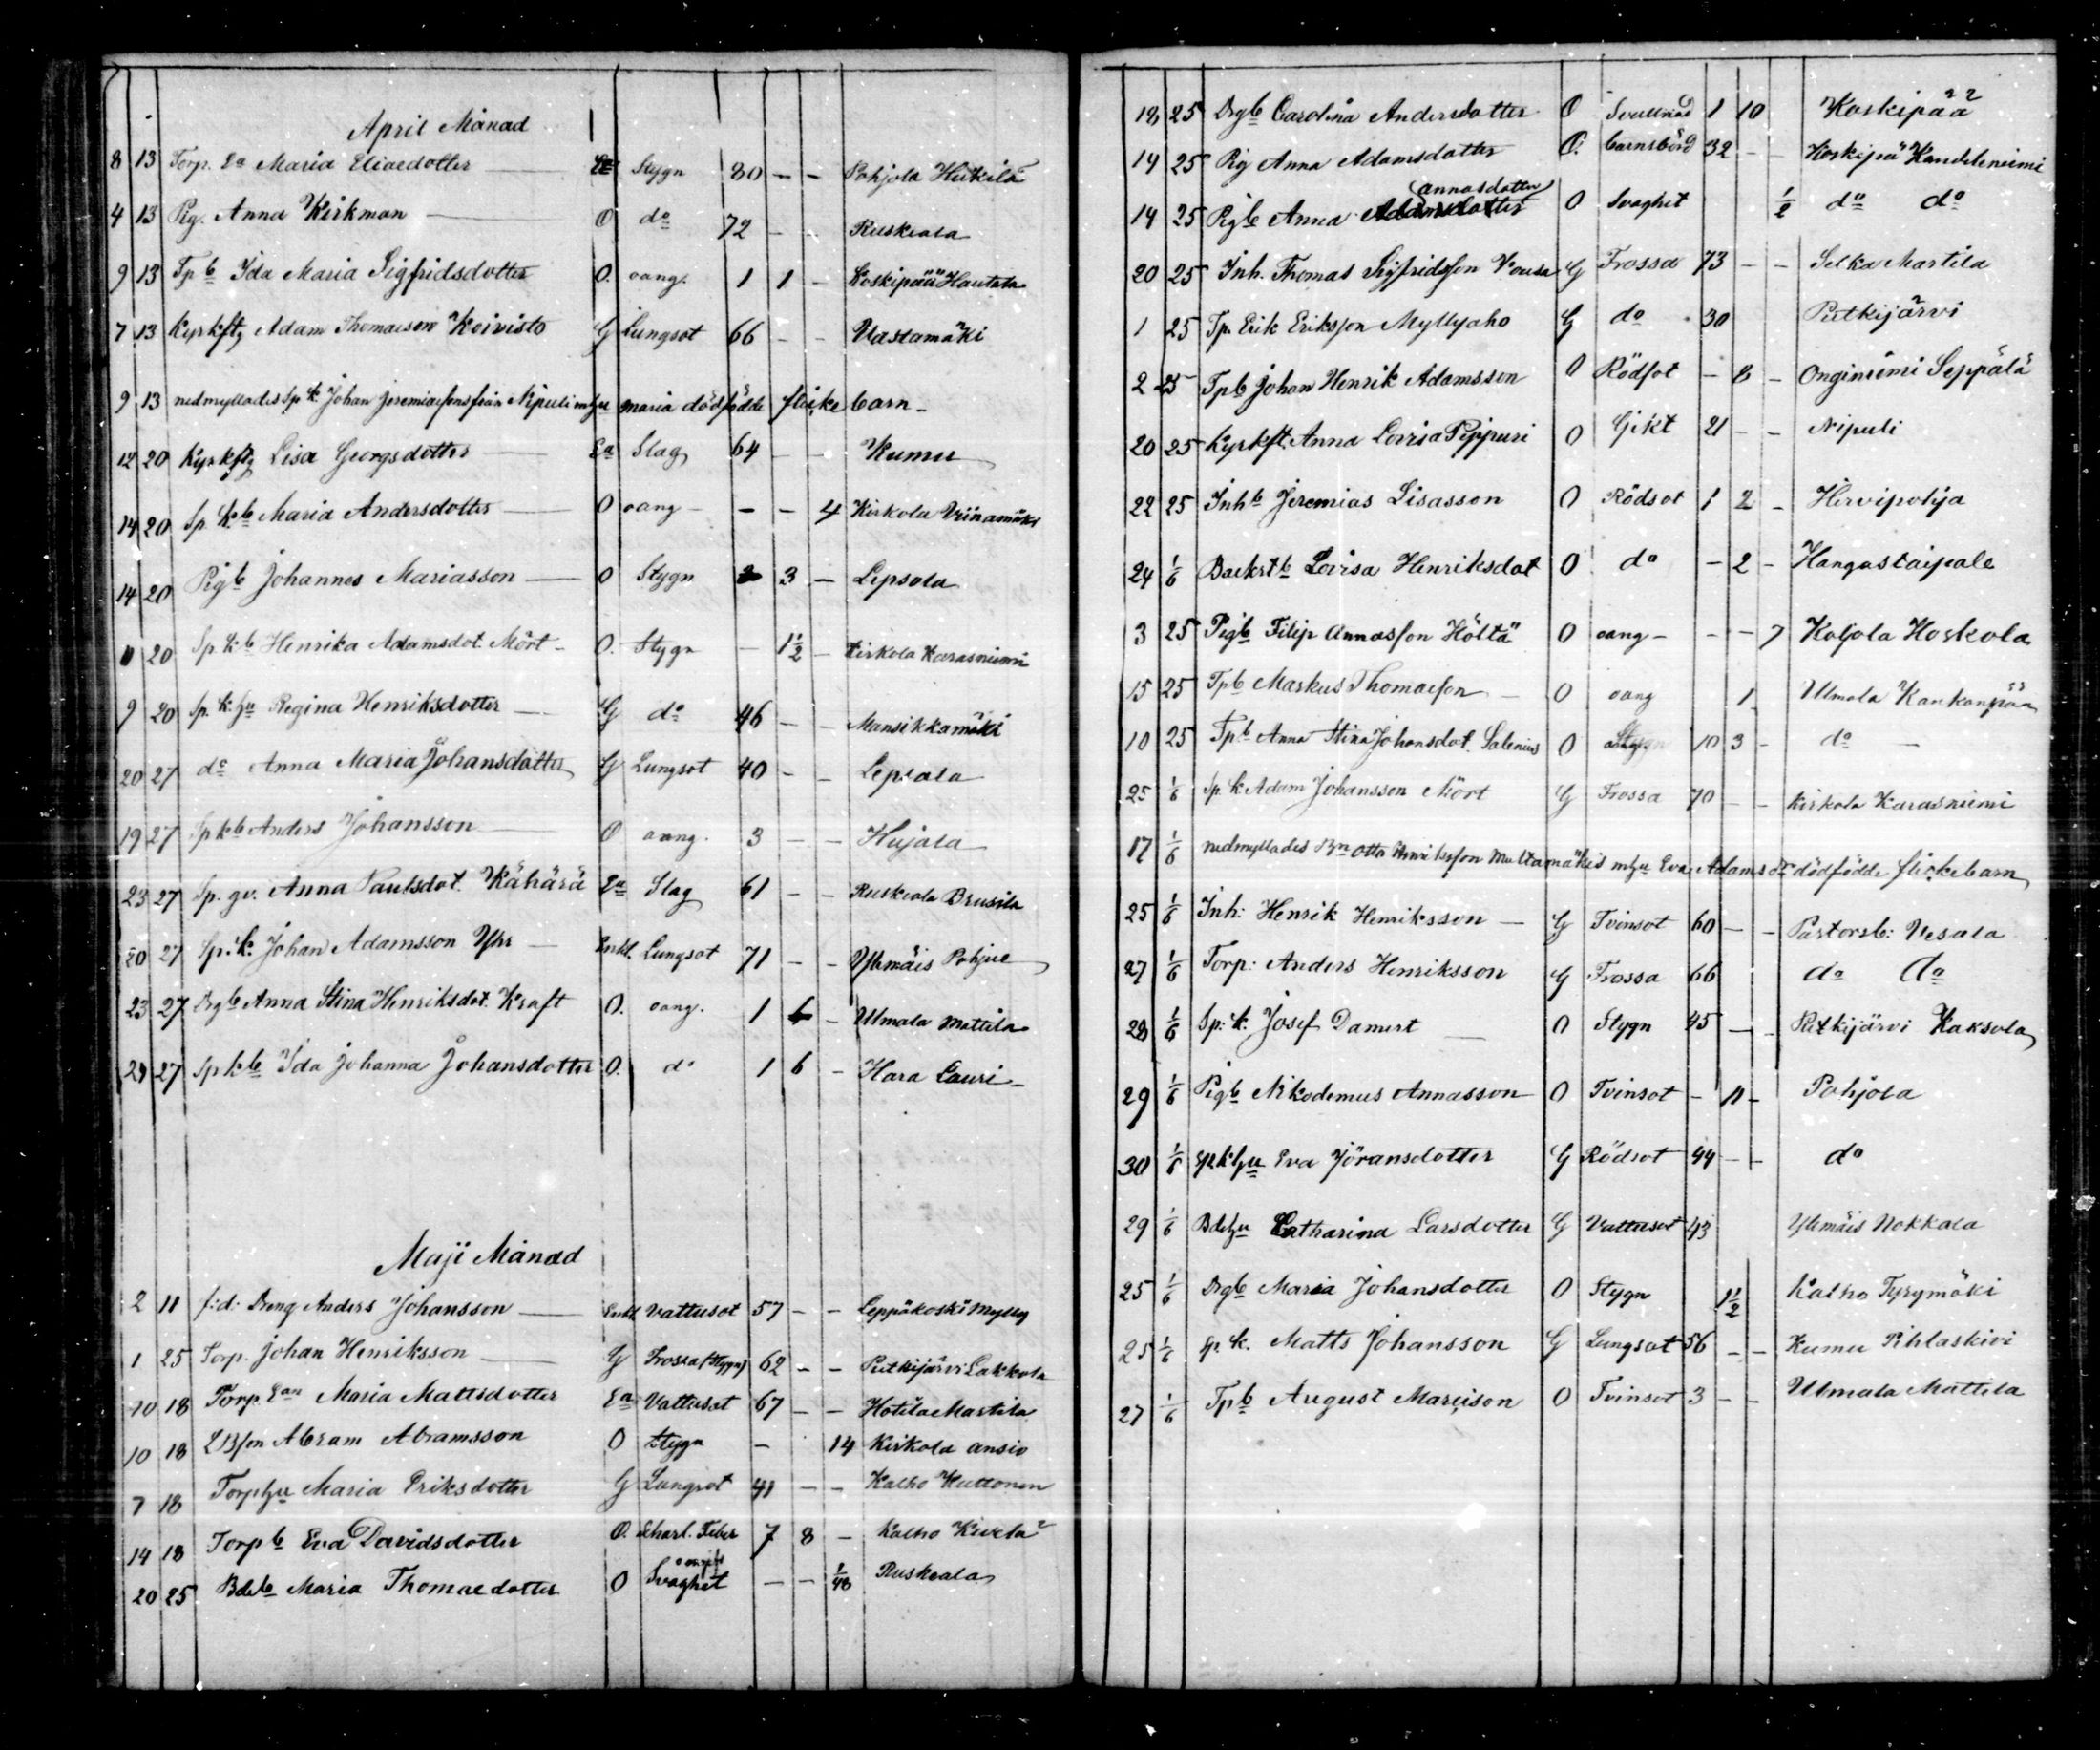 April Månad
8 13 Torp. Ea Maria Eliaedotter — Ea Stygn 80 — — Pohjola Heikilä
4 13 Pig. Anna Kirkman — O do 72 — — Ruskiala
9 13 Tpb Ida Maria Sigfridsdotter O. oang. 1 1 — Koskipää Hautala
7 13 Kyrkftg Adam Thomasson Koivisto G Lungsot 66 — — Vastamäki
9 13 nedmyllades Sp k Johan Jeremiaesons från Nipuli mhu Maria dödfödde flickebarn —
12 20 Kyrkftg Lisa Georgsdotter — Ea Slag 64 — — Kumu
14 20 Sp. kb Maria Andersdotter — O oang — — — 4 Kirkola Viinamäki
14 20 Pigb Johannes Mariasson — O Stygn 3 — Lepsala
11 20 Sp. kb Henrika Adamsdot. Mört — O. Stygn — 1½ — Kirkola Karasniemi
9 20 Sp. k. hu Regina Henriksdotter — G do 46 — — Mansikkamäki
20 27 do Anna Maria Johansdotter G Lungsot 40 — — Lepsala
19 27 Sp kb Anders Johansson — O oang. 3 — — Hujala
23 27 Sp. gv. Anna Paulsdot. Kähärä Ea Slag 61 — — Ruskiala Brusila
20 27 Sp. k. Johan Adamsson Yhr — Enkl. Lungsot 71 — — Ylimäis Pohjue
23 27 Drgb Anna Stina Henriksdot. Kraft O. oang. 1 6 — Ulmala Mattila
24 27 Sp kb Ida Johanna Johansdotter O. do 1 6 — Hara Lauri —
Maji Månad
2 11 f:d: Dreng Anders Johansson — Enkl Vattusot 57 — — Leppäkoski Mylly
1 25 Torp. Johan Henriksson — G Frossa (Stygn) 62 — — Putkijärvi Lakkola
10 18 Torp. Ean Maria Mattsdotter Ea Vattusot 67 — — Hotila Martila
10 18 LBson Abram Abramsson O Stygn — 14 Kirkola ansio
7 18 Torphu Maria Eriksdotter G Lungsot 41 — — Kalho Huttonen
14 18 Torpb Eva Davidsdotter O. Skarl. Feber 7 8 — Kalho Kivelä
20 25 Bdeb Maria Thomaedotter O Svaghet — — 1/48 Ruskeala
18 25 Drgb Carolina Andersdotter O Svullnad 1 10 Koskipää
14 25 Pig Anna Adamsdotter O. barnsbörd 32 — — Koskipää Kandeleniemi
14 25 Pigb Anna Annasdotter O Svaghet ½ do do
20 25 Inh. Thomas Sigfridsson Vousa G Frossa 73 — — Selka Martila
1 25 Tp. Erik Eriksson Myllyaho G do 30 Putkijärvi
2 25 Tpb Johan Henrik Adamsson O Rödsot — 8 — Onginiemi Seppälä
20 25 Kyrkft. Anna Lovisa Pippuri O Gikt 21 — — Nipuli
22 25 Inhb Jeremias Lisasson O Rödsot 1 2 — Hirvipohja
24 1/6 Backstb Lovisa Henriksdot O do — 2 — Hangastaipale
3 25 Pigb Filip Annasson Höltä O oang — — — 7 Koljola Hoskola
15 25 Tpb Markus Thomaeson — O oang 1 Ulmala Kankanpää
10 25 Tpb Anna Stina Johansdot. Salenius O Stygn 10 3 — do —
25 1/6 Sp. k Adam Johansson Mört G Frossa 70 — — Kirkola Karasniemi
17 1/6 nedmyllades Bn Otto Henriksson Multamäkis mhu Eva Adamsdr dödfödde flickebarn
25 1/6 Inh: Henrik Henriksson — G Tvinsot 60 — — Pastorsb: Vesala
27 1/6 Torp: Anders Henriksson G Frossa 66 do do
28 1/6 Sp: k. Josef Damert — O Stygn 45 — — Putkijärvi Kaksola
29 1/6 Pigb Nikodemus Annasson O Tvinsot — 11 — Pohjola
30 1/6 Spk hu Eva Jöransdotter G Rödsot 44 — — do
29 1/6 Bdehu Catharina Larsdotter G Vattusot 43 Ylimäis Nokkala
25 1/6 Drgb Maria Johansdotter O Stygn 1½ Kalho Tyrymäki
25 1/6 Sp. k. Matts Johansson G Lungsot 56 — — Kumu Pihlaskivi
27 1/6 Tpb August Mariison O Tvinsot 3 — — Ulmala Mattila